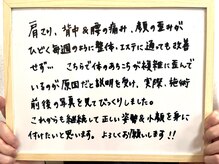 肩こり、背中&腰の痛み、顔の歪みが
ひどく毎週のように整体、エステに通っても改善
せず… こちらで体のあちこちが複雑に歪んで
いるのが原因だと説明を受け、実際、施術
前後の写真を見てびっくりしました。
これからも継続して正しい姿勢&小顔を身に
付けたいと思います。よろしくお願いします!!